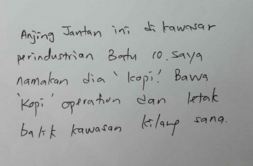 Anjing Jantan ini di kawasan
perindustrian Batu 10. saya
namakan dia 'kopi'. Bawa
'kopi' operation dan letak
balik kawasan kilang sana.